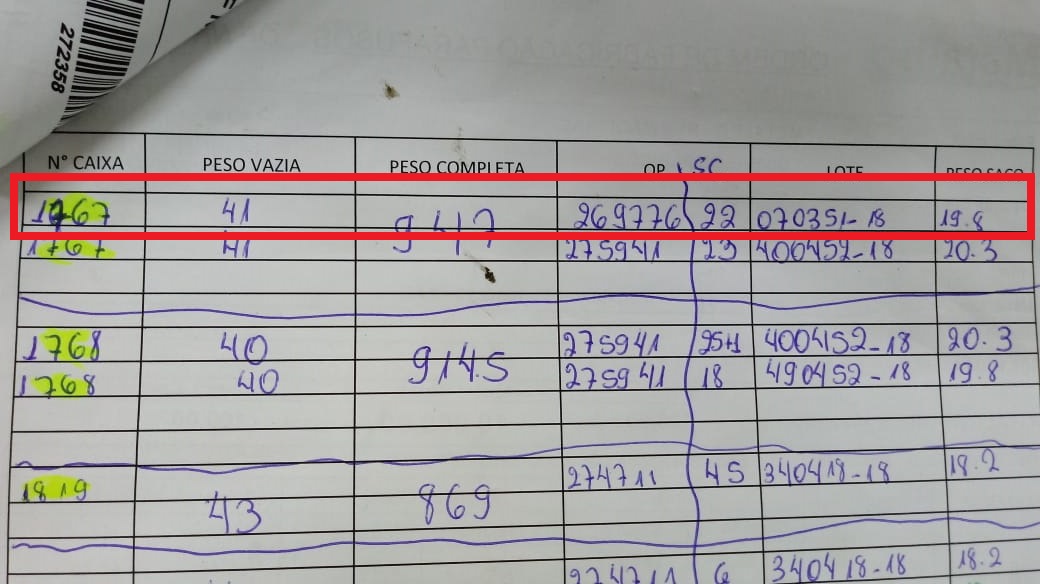 272358
N° CAIXA PESO VAZIA PESO COMPLETA OP SC LOTE PESO SACO
1767 41 9417 269776 22 070351-18 19.8
1767 41 275941 23 400452-18 20.3
1768 40 9145 275941 25+1 400452-18 20.3
1768 40 275941 18 490452-18 19.8
274711 45 340418-18 18.2
1819 43 869
274711 6 340418-18 18.2